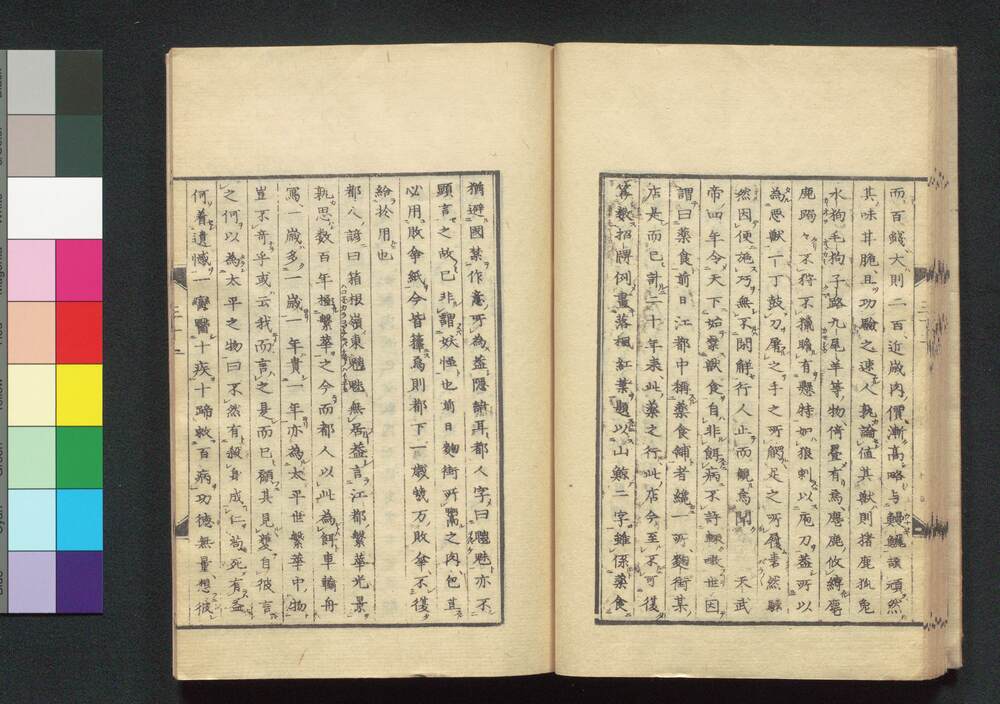 而百錢大則二百近歲肉價漸高略与鰻鱺讓頑然
其味甘脆且功驗之速人孰論值其獸則猪鹿狐兔
水狗毛狗子路九尾羊等物倚疊有焉麀鹿攸縛麀
鹿躅々不狩不獵瞻有懸特如狼刺以庖刀蓋所以
為惡獸一丁鼓刀屠之手之所觸足之所履砉然騞
然因便施巧無不開解行人止而觀焉聞 天武
帝四年令天下始禁獸食自非餌病不許輙噉世因
謂曰藥食前日江都中稱藥食鋪者纔一所麴街某
店是而已計二十年来此藥之行此店今至不可復
算數招牌例畫落楓紅葉題以山鯨二字雖係藥食
猶避國禁作意所為益隱語耳都人字曰魑魅亦不
顯言之故已非謂妖怪也前日麴街所鬻之肉包苴
必用敗傘紙今皆籜焉則都下一歲幾万敗傘不復
給於用也
都人諺曰箱根嶺東魑魅無居蓋言江都繁華光景
孰思數百年極繁華之今而都人以此為餌車輪舟
駕一歲多一歲一年貴一年亦為太平世繁華中物
豈不奇乎或云我而言之是而已顧其見獲自彼言
之何以為太平之物曰不然有殺身成仁苟死有益
何着遺憾一臠醫十疾十蹄救百病功德無量想彼